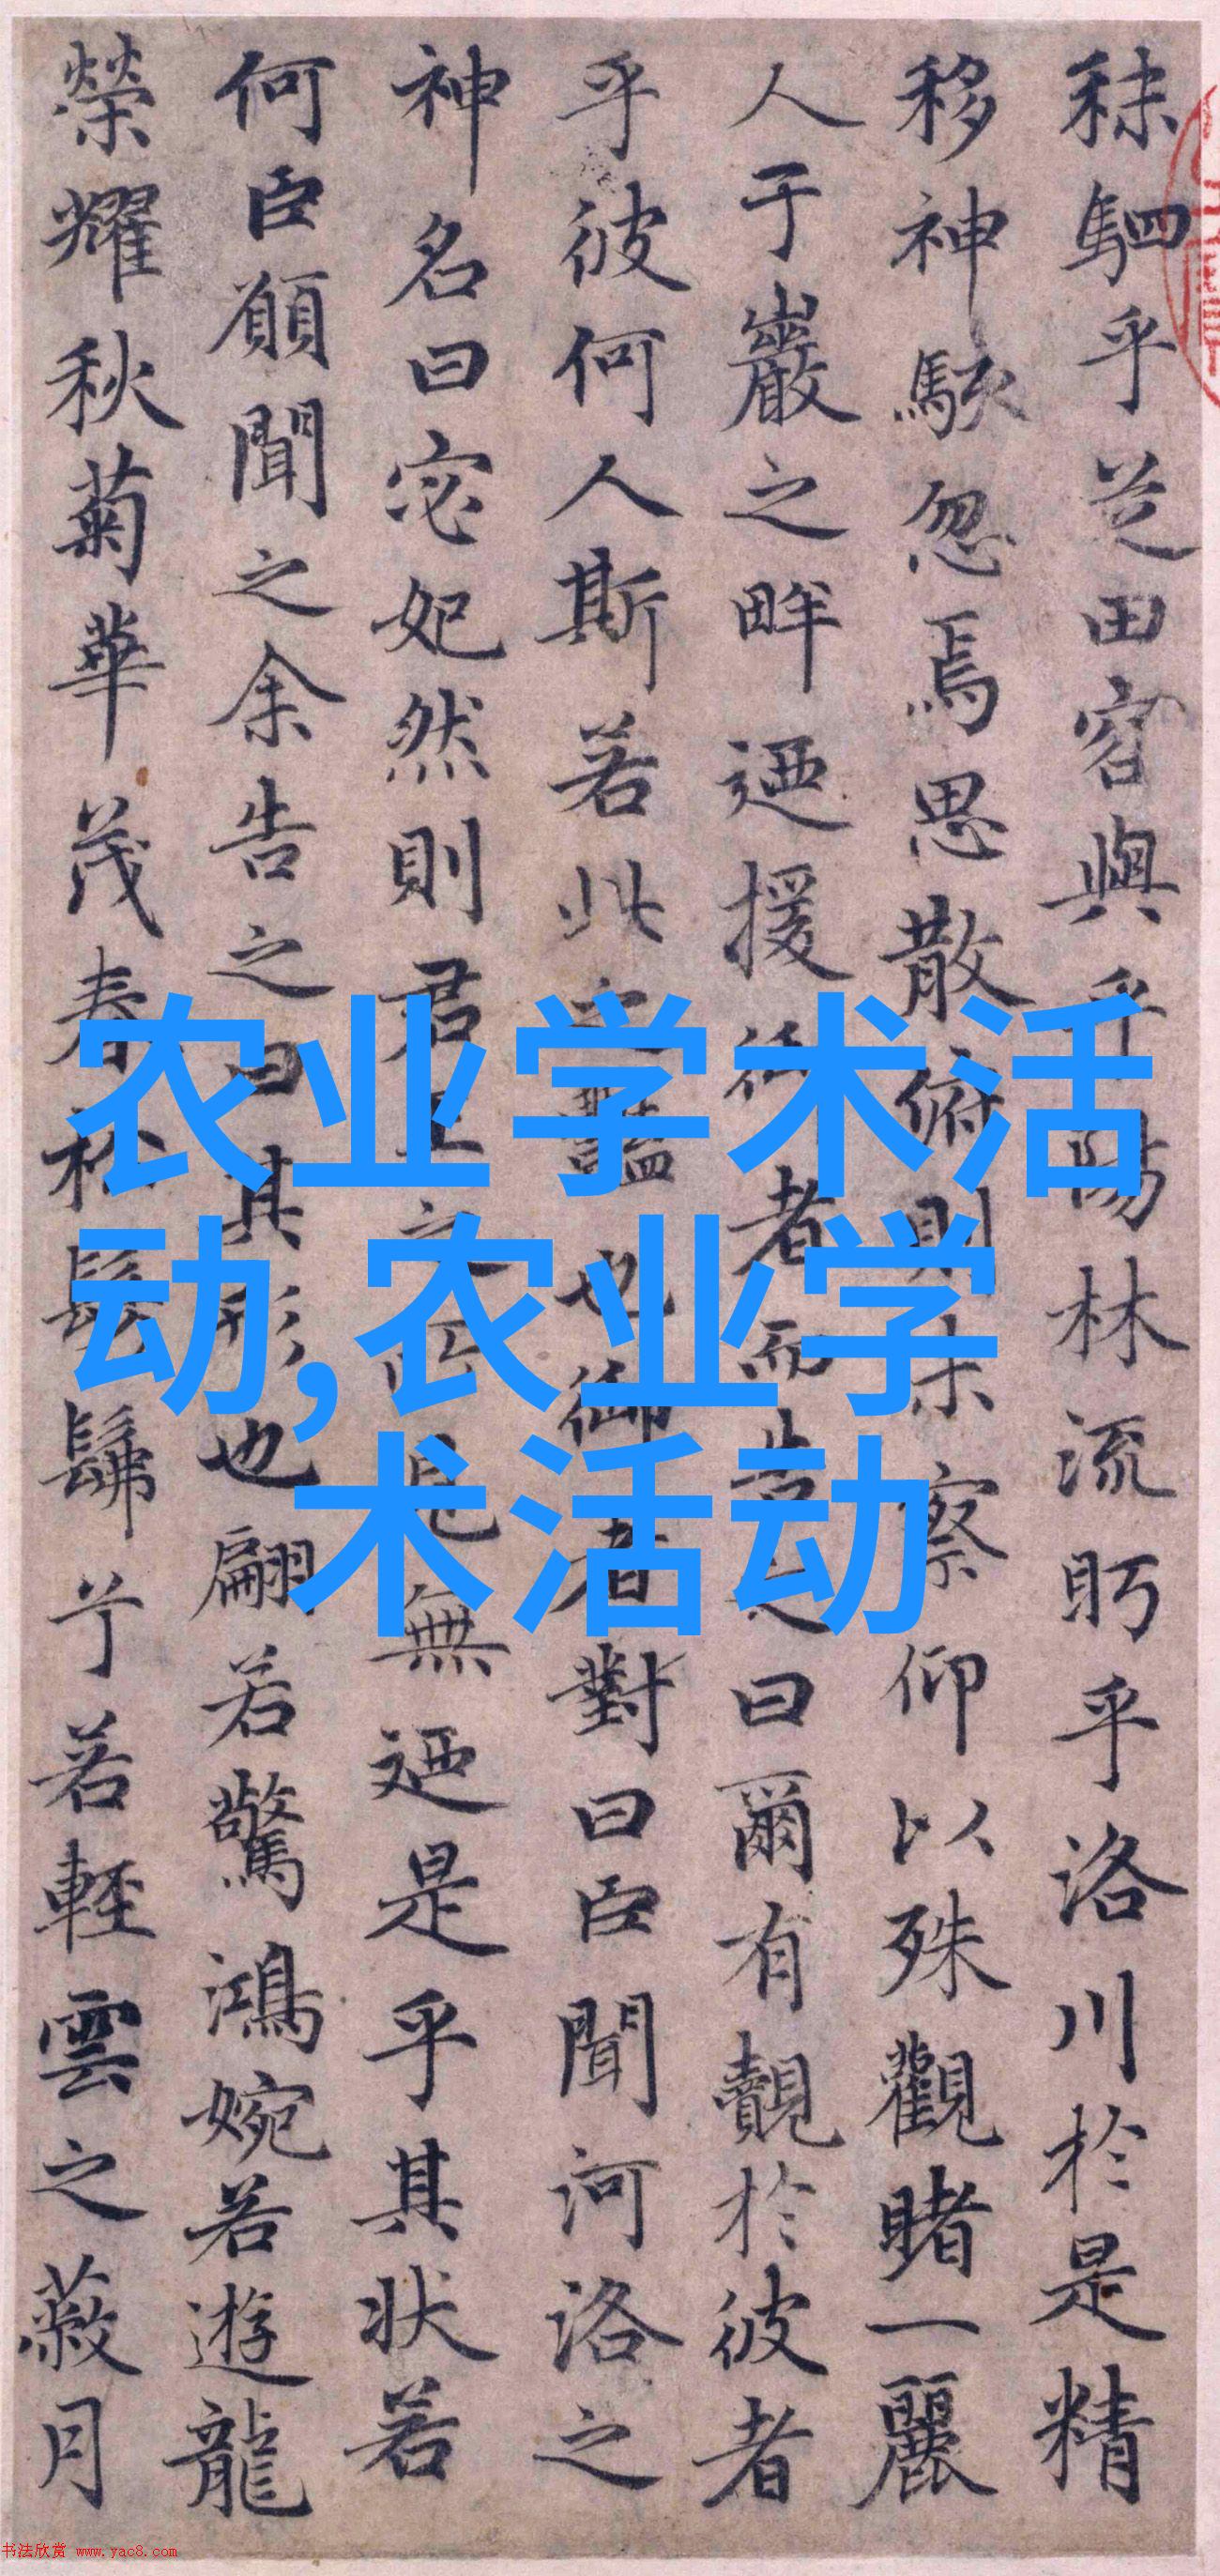 秣駟乎芝田容與乎陽林流眄乎洛川於是精
移神駭忽焉思散俯則未察仰以殊觀睹一麗
人于巖之畔迺援御者而告之曰爾有覿於彼者
乎彼何人斯若此之豔也御者對曰臣聞河洛之
神名曰宓妃然則君王之所見無迺是乎其状若
何臣願聞之余告之曰其形也翩若驚鴻婉若遊龍
榮耀秋菊華茂春松髣髴兮若輕雲之蔽月
农业学术活
动,农业学
术活动
书法欣赏 www.yac8.com